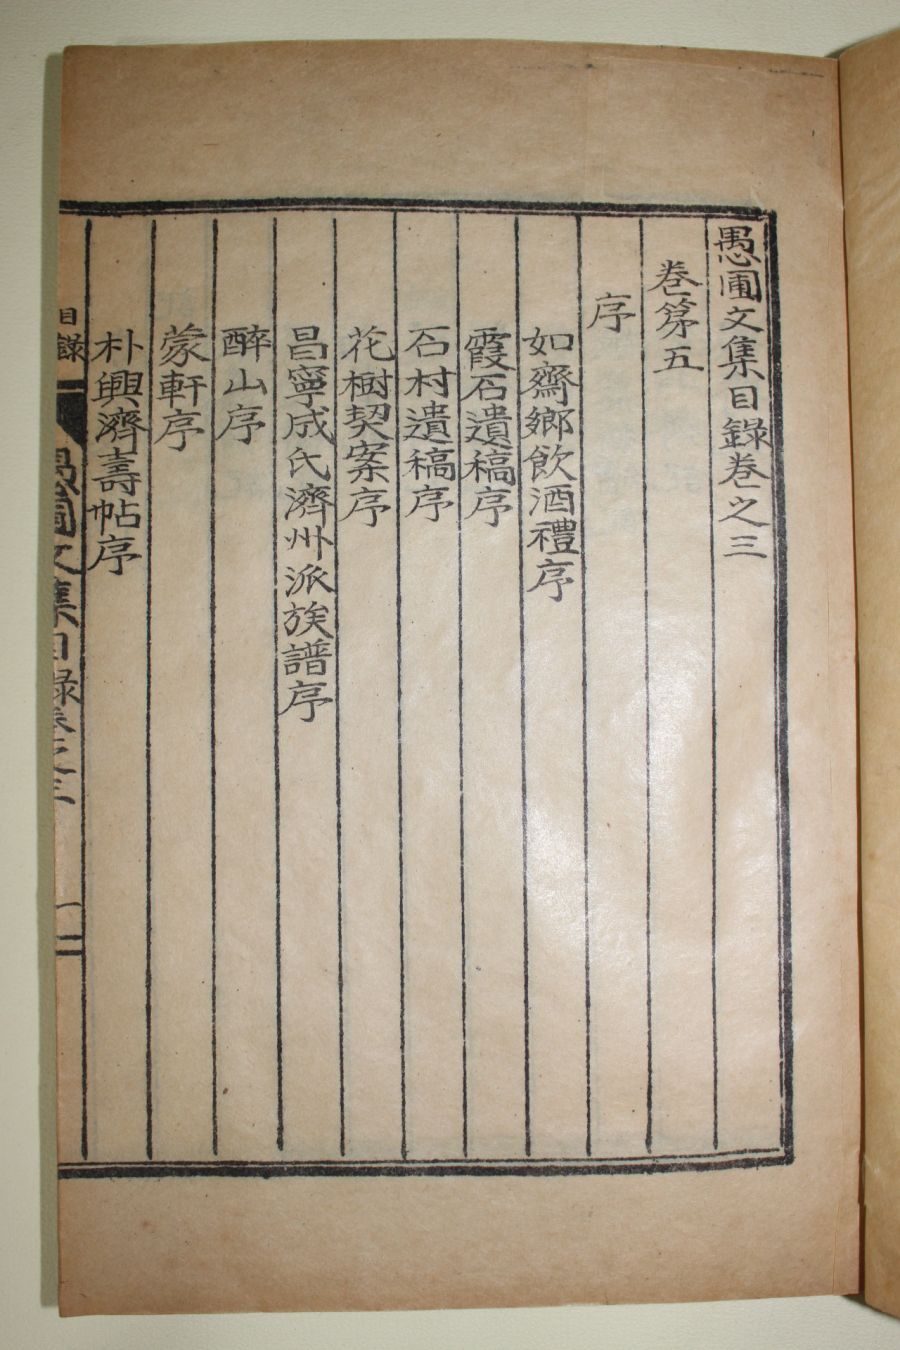 愚圃文集目錄卷之三
卷第五
序
如齋鄉飮酒禮序
霞石遺稿序
石村遺稿序
花樹契案序
昌寧成氏濟州派族譜序
醉山序
蒙軒序
朴興濟壽帖序
目錄
愚圃文集目錄卷之三
一